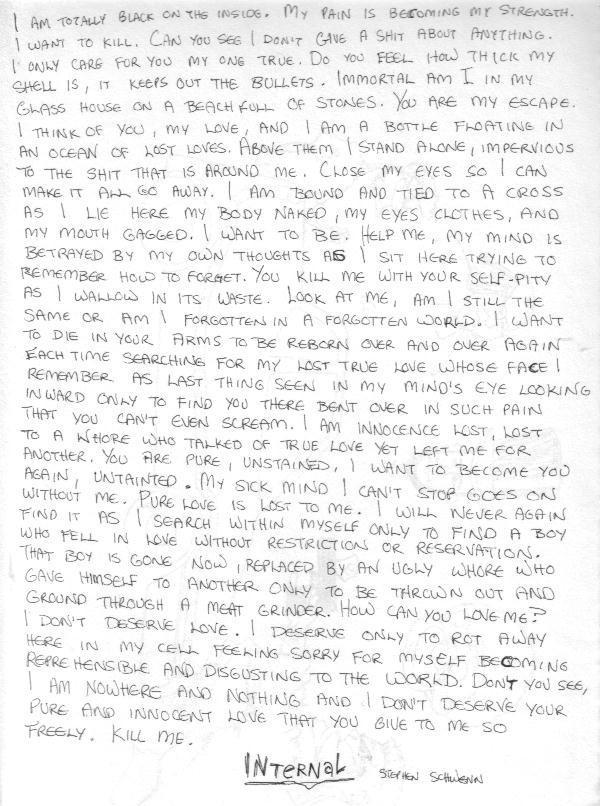 I AM TOTALLY BLACK ON THE INSIDE. MY PAIN IS BECOMING MY STRENGTH.
I WANT TO KILL. CAN YOU SEE I DON'T GIVE A SHIT ABOUT ANYTHING.
I ONLY CARE FOR YOU MY ONE TRUE. DO YOU FEEL HOW THICK MY
SHELL IS, IT KEEPS OUT THE BULLETS. IMMORTAL AM I IN MY
GLASS HOUSE ON A BEACH FULL OF STONES. YOU ARE MY ESCAPE.
I THINK OF YOU, MY LOVE, AND I AM A BOTTLE FLOATING IN
AN OCEAN OF LOST LOVES. ABOVE THEM I STAND ALONE, IMPERVIOUS
TO THE SHIT THAT IS AROUND ME. CLOSE MY EYES SO I CAN
MAKE IT ALL GO AWAY. I AM BOUND AND TIED TO A CROSS
AS I LIE HERE MY BODY NAKED, MY EYES CLOTHES, AND
MY MOUTH GAGGED. I WANT TO BE. HELP ME, MY MIND IS
BETRAYED BY MY OWN THOUGHTS AS I SIT HERE TRYING TO
REMEMBER HOW TO FORGET. YOU KILL ME WITH YOUR SELF-PITY
AS I WALLOW IN ITS WASTE. LOOK AT ME, AM I STILL THE
SAME OR AM I FORGOTTEN IN A FORGOTTEN WORLD. I WANT
TO DIE IN YOUR ARMS TO BE REBORN OVER AND OVER AGAIN
EACH TIME SEARCHING FOR MY LOST TRUE LOVE WHOSE FACE I
REMEMBER AS LAST THING SEEN IN MY MIND'S EYE LOOKING
INWARD ONLY TO FIND YOU THERE BENT OVER IN SUCH PAIN
THAT YOU CAN'T EVEN SCREAM. I AM INNOCENCE LOST, LOST
TO A WHORE WHO TALKED OF TRUE LOVE YET LEFT ME FOR
ANOTHER. YOU ARE PURE, UNSTAINED, I WANT TO BECOME YOU
AGAIN, UNTAINTED. MY SICK MIND I CAN'T STOP GOES ON
WITHOUT ME. PURE LOVE IS LOST TO ME. I WILL NEVER AGAIN
FIND IT AS I SEARCH WITHIN MYSELF ONLY TO FIND A BOY
WHO FELL IN LOVE WITHOUT RESTRICTION OR RESERVATION.
THAT BOY IS GONE NOW, REPLACED BY AN UGLY WHORE WHO
GAVE HIMSELF TO ANOTHER ONLY TO BE THROWN OUT AND
GROUND THROUGH A MEAT GRINDER. HOW CAN YOU LOVE ME?
I DON'T DESERVE LOVE. I DESERVE ONLY TO ROT AWAY
HERE IN MY CELL FEELING SORRY FOR MYSELF BECOMING
REPREHENSIBLE AND DISGUSTING TO THE WORLD. DON'T YOU SEE,
I AM NOWHERE AND NOTHING AND I DON'T DESERVE YOUR
PURE AND INNOCENT LOVE THAT YOU GIVE TO ME SO
FREELY. KILL ME.
INTERNAL STEPHEN SCHWENN